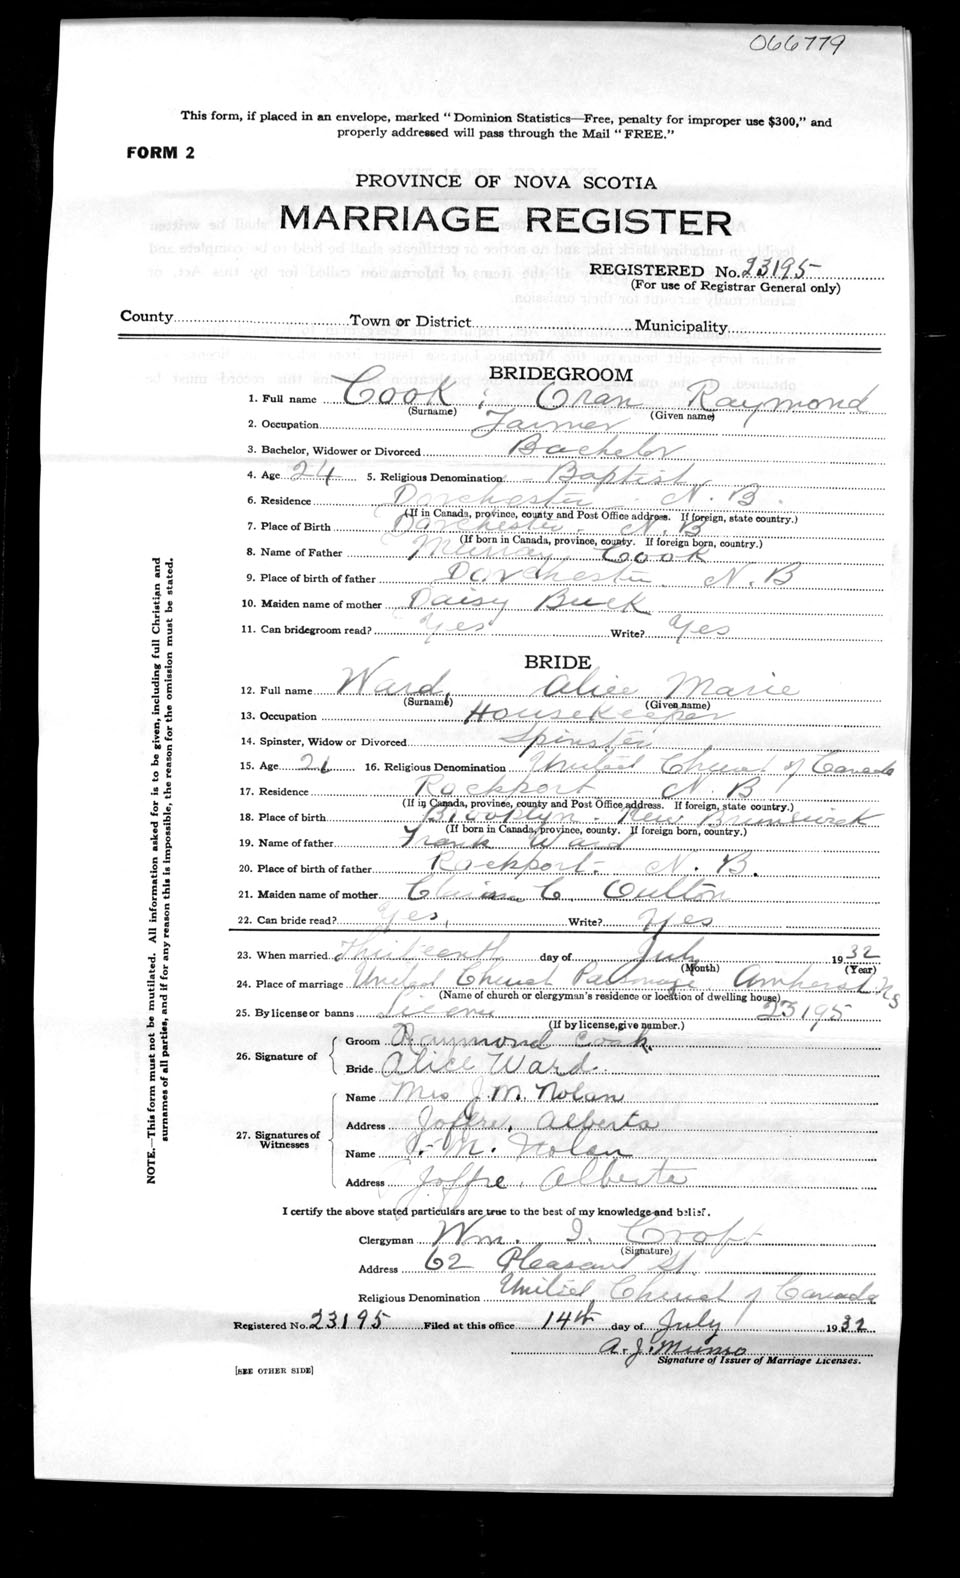 066779
This form, if placed in an envelope, marked "Dominion Statistics—Free, penalty for improper use $300," and
properly addressed will pass through the Mail "FREE."
FORM 2
PROVINCE OF NOVA SCOTIA
MARRIAGE REGISTER
REGISTERED No. 23195
(For use of Registrar General only)
County Town or District Municipality
BRIDEGROOM
1. Full name Cook, Oran Raymond
(Surname) (Given name)
2. Occupation Farmer
3. Bachelor, Widower or Divorced Bachelor
4. Age 24 5. Religious Denomination Baptist
6. Residence Dorchester N.B.
(If in Canada, province, county and Post Office address. If foreign, state country.)
7. Place of Birth Dorchester N.B
(If born in Canada, province, county. If foreign born, country.)
8. Name of Father Murray Cook
9. Place of birth of father Dorchester N.B
10. Maiden name of mother Daisy Buck
11. Can bridegroom read? Yes Write? Yes
BRIDE
12. Full name Ward, Alice Marie
(Surname) (Given name)
13. Occupation Housekeeper
14. Spinster, Widow or Divorced Spinster
15. Age 21 16. Religious Denomination United Church of Canada
17. Residence Rockport N.B
(If in Canada, province, county and Post Office address. If foreign, state country.)
18. Place of birth New Brunswick
(If born in Canada, province, county. If foreign born, country.)
19. Name of father Frank Ward
20. Place of birth of father Rockport. N.B.
21. Maiden name of mother C. Oulton
22. Can bride read? Yes Write? Yes
23. When married Thirteenth day of July 1932
(Month) (Year)
24. Place of marriage United Church Parsonage Amherst NS
(Name of church or clergyman's residence or location of dwelling house)
25. By license or banns License 23195
(If by license, give number.)
26. Signature of
Groom Raymond Cook
Bride Alice Ward
27. Signatures of Witnesses
Name Mrs J. M. Nolan
Address Joffre, Alberta
Name J. M. Nolan
Address Joffre, Alberta
I certify the above stated particulars are true to the best of my knowledge and belief.
Clergyman Wm. I. Croft
(Signature)
Address 62 Pleasant St.
Religious Denomination United Church of Canada
Registered No. 23195 Filed at this office 14th day of July 1932
A. J. Munro
Signature of Issuer of Marriage Licenses.
[SEE OTHER SIDE]
NOTE.—This form must not be mutilated. All information asked for is to be given, including full Christian and
surnames of all parties, and if for any reason this is impossible, the reason for the omission must be stated.